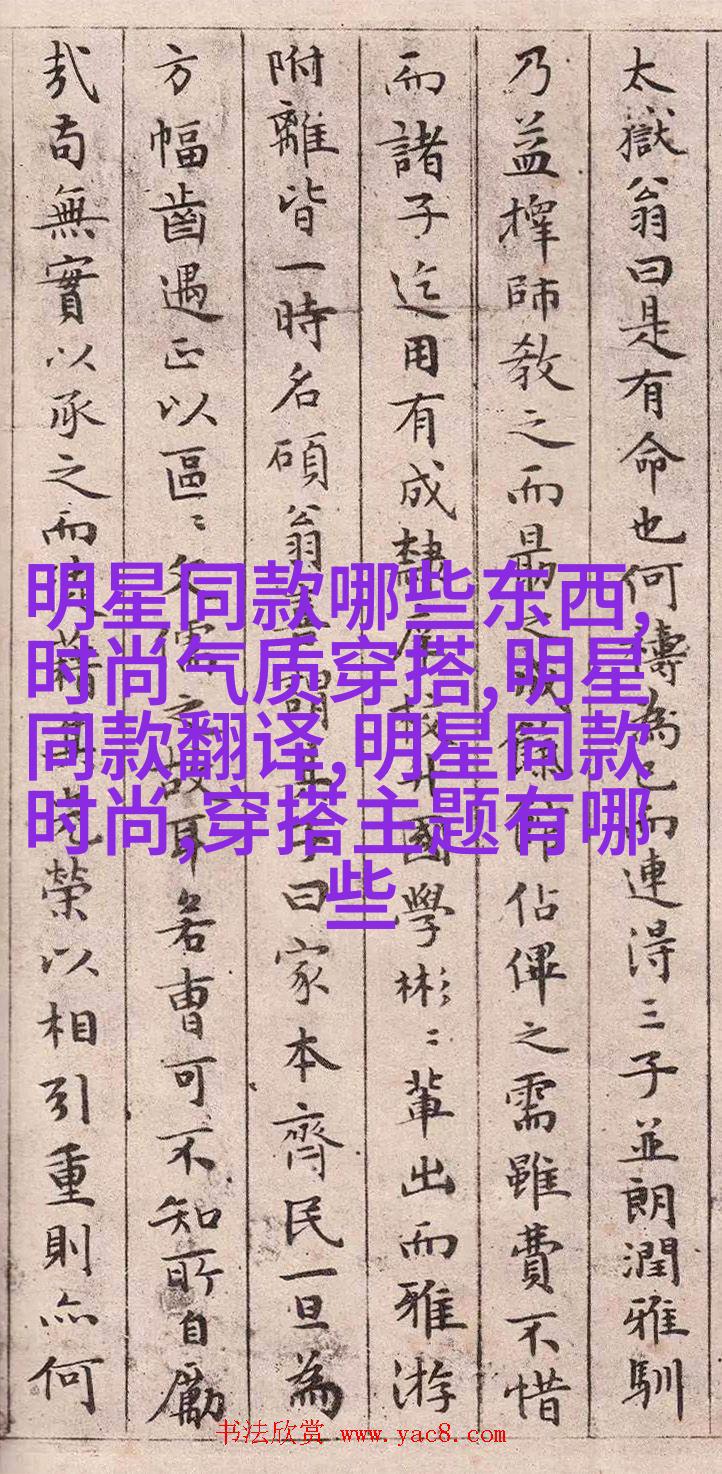 太嶽翁曰是有命也何為已而連得三子並朗潤雅馴
乃益擇師教之而之佔俾之需雖費不惜
而諸子迄用有成隸庠校升國學彬〻輩出而雅游
附離皆一時名碩翁謂子曰家本齊民一旦為
方幅齒遇正以區〻文儒之故耳若曹可不知所自勵
哉苟無實以承之而藉光榮以相引重則亦何
明星同款哪些东西,
时尚气质穿搭,明星
同款翻译,明星同款
时尚,穿搭主题有哪
些
书法欣赏 www.yac8.com